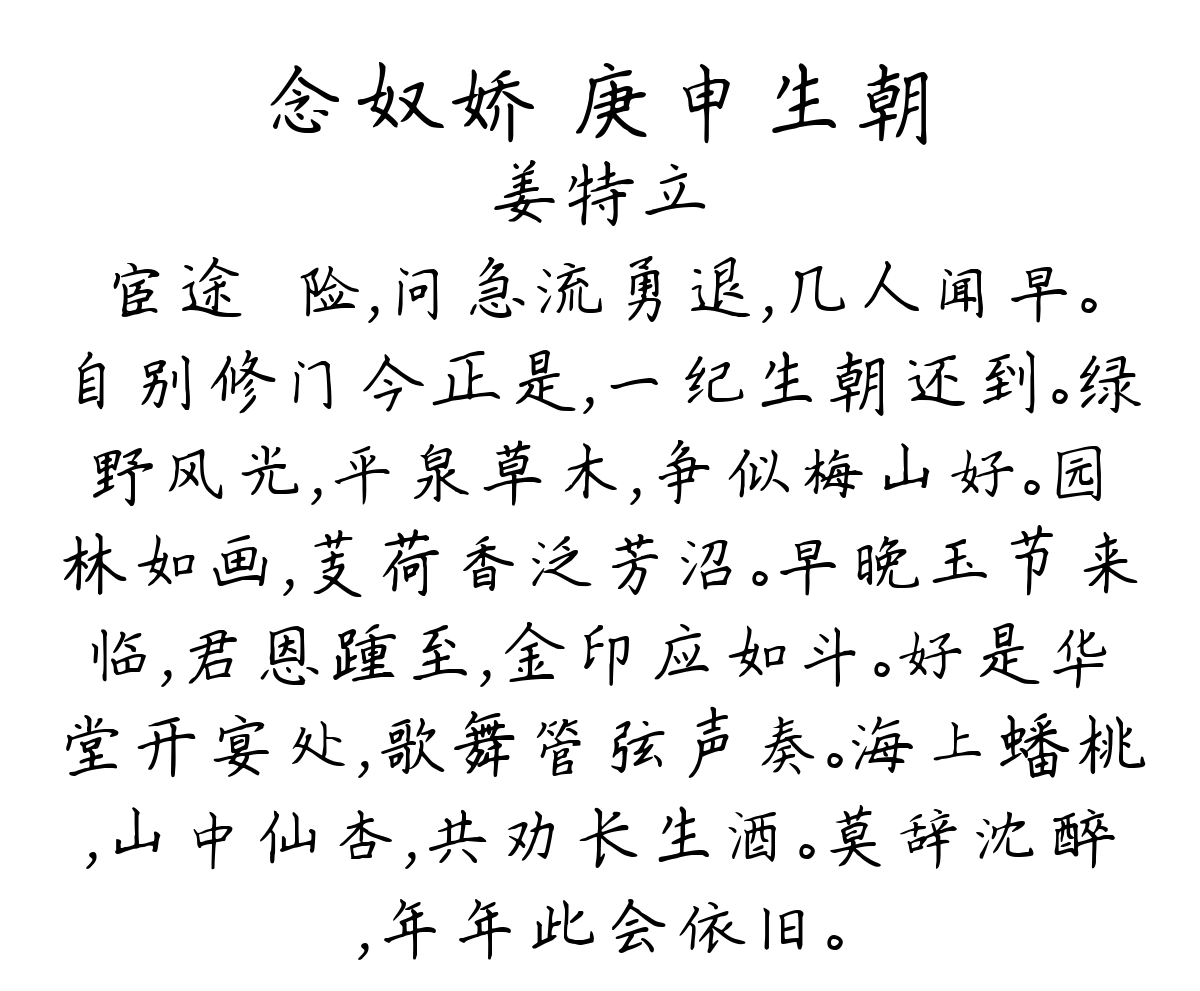 念奴娇 庚申生朝
姜特立
宦途 险,问急流勇退,几人闻早。
自别修门今正是,一纪生朝还到。绿
野风光,平泉草木,争似梅山好。园
林如画,芰荷香泛芳沼。早晚玉节来
临,君恩踵至,金印应如斗。好是华
堂开宴处,歌舞管弦声奏。海上蟠桃
,山中仙杏,共劝长生酒。莫辞沈醉
,年年此会依旧。